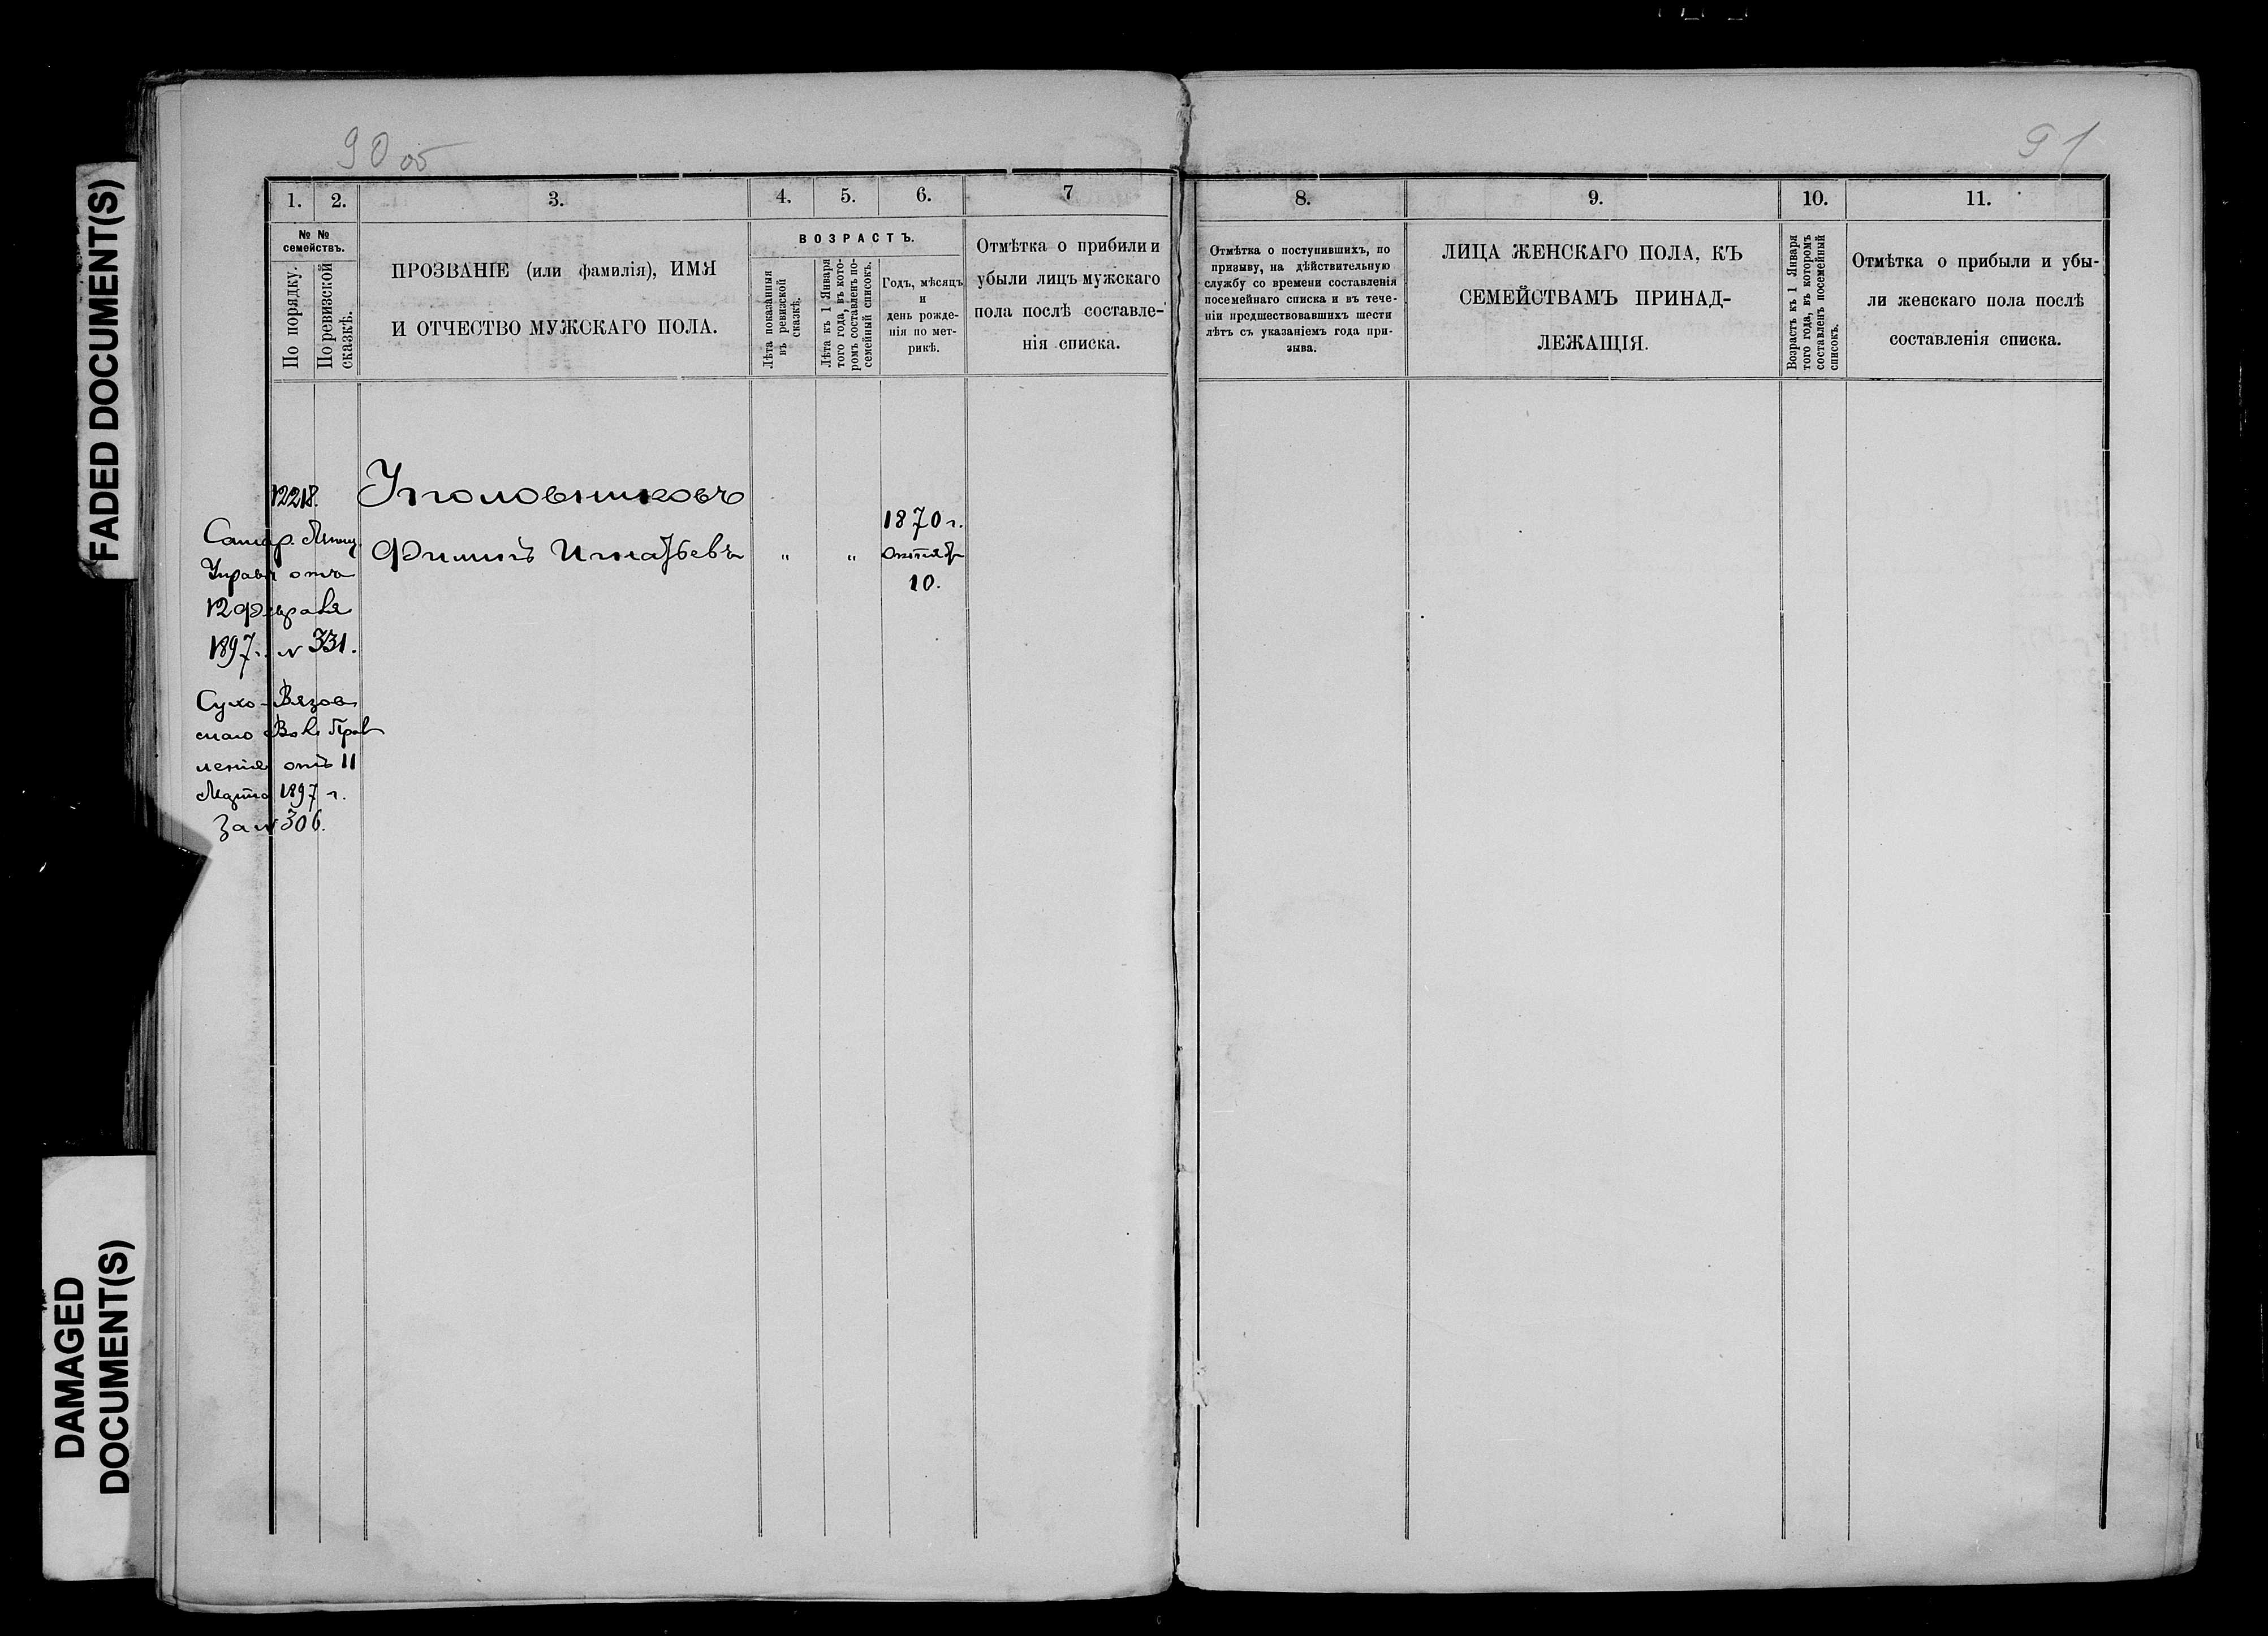 FADED DOCUMENT(S)
DAMAGED
DOCUMENT(S)
90 об
91
1.
2.
3.
4.
5.
6.
7
№ №
семействъ.
По порядку.
По ревизской
сказкѣ.
ПРОЗВАНІЕ (или фамилія), ИМЯ
И ОТЧЕСТВО МУЖСКАГО ПОЛА.
ВОЗРАСТЪ.
Лѣта показанныя
въ ревизской
сказкѣ.
Лѣта къ 1 Января
того года, въ кото-
ромъ составленъ по-
семейный списокъ.
Годъ, мѣсяцъ
и
день рожде-
нія по мет-
рикѣ.
Отмѣтка о прибыли и
убыли лицъ мужскаго
пола послѣ составле-
нія списка.
12218.
Уполовниковъ
Самар. Мѣщ.
Управы отъ
12 февраля
1897 г. № 331.
Филипъ Игнатьевъ
"
"
1870 г.
Октября
10.
Сухо-Вязов
скаго Вол. Прав
ленія отъ 11
Марта 1897 г.
за № 306.
8.
9.
10.
11.
Отмѣтка о поступившихъ, по
призыву, на дѣйствительную
службу со времени составленія
посемейнаго списка и въ тече-
ніи предшествовавшихъ шести
лѣтъ съ указаніемъ года при-
зыва.
ЛИЦА ЖЕНСКАГО ПОЛА, КЪ
СЕМЕЙСТВАМЪ ПРИНАД-
ЛЕЖАЩІЯ.
Возрастъ къ 1 Января
того года, въ которомъ
составленъ посемейный
списокъ.
Отмѣтка о прибыли и убы-
ли женскаго пола послѣ
составленія списка.